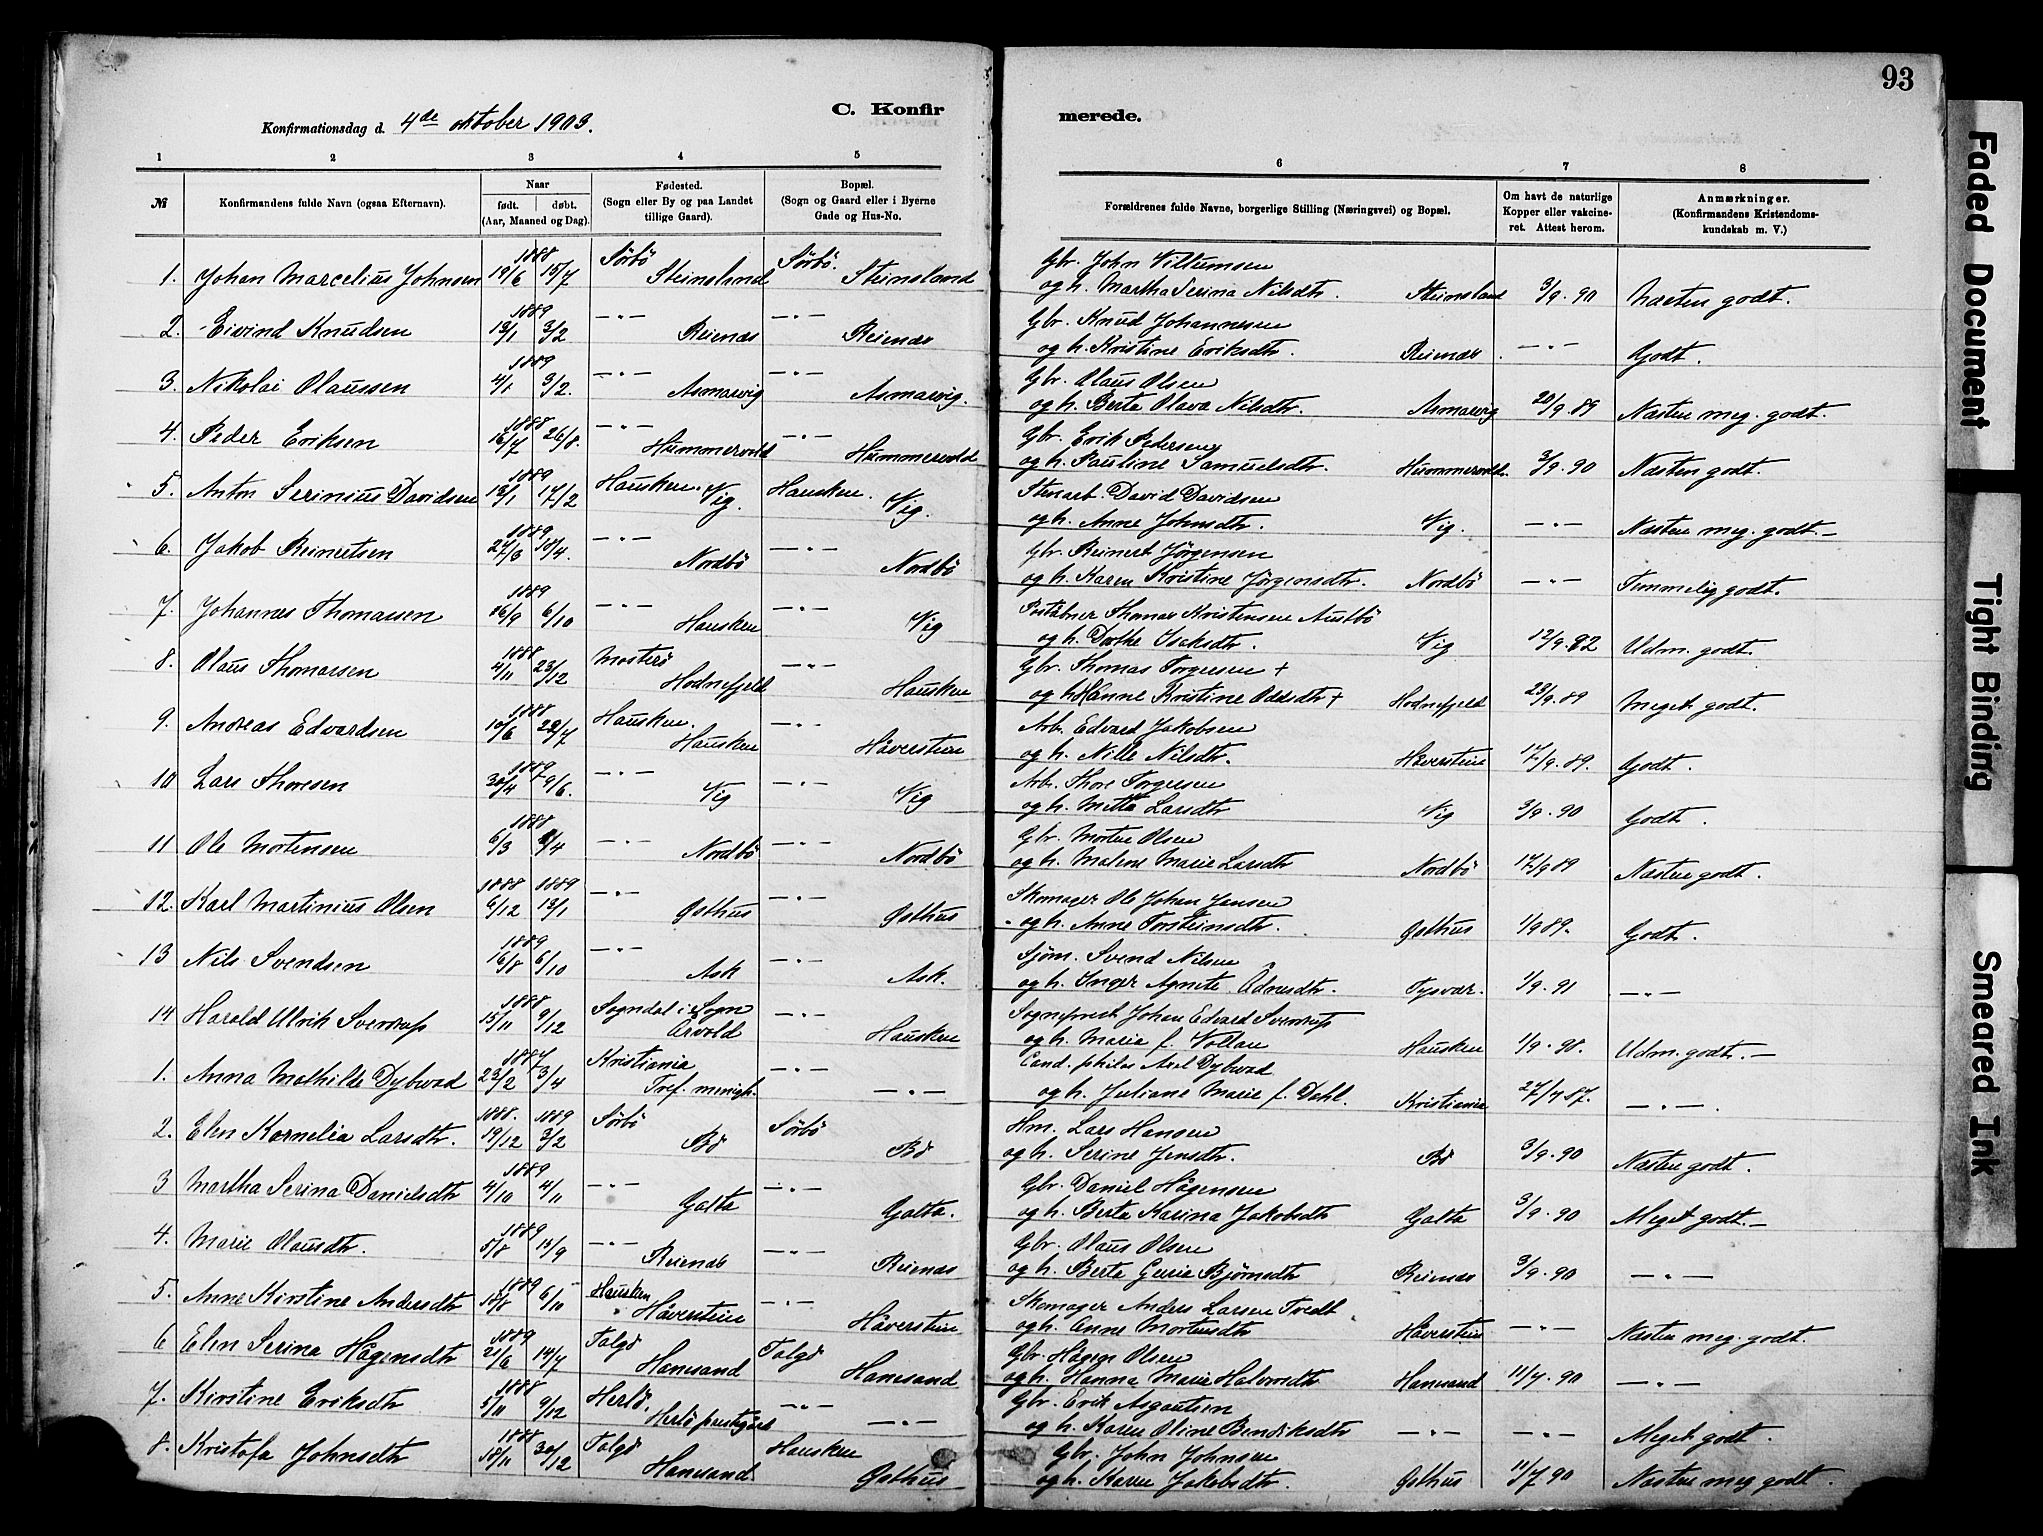 93
C. Konfirmerede.
Konfirmationsdag d. 4de oktober 1903.
1 2 3 4 5 6 7 8
№ Konfirmandens fulde Navn (ogsaa Efternavn). Naar født. døbt. (Aar, Maaned og Dag). Fødested. (Sogn eller By og paa Landet tillige Gaard). Bopæl. (Sogn og Gaard eller i Byerne Gade og Hus-No. Forældrenes fulde Navne, borgerlige Stilling (Næringsvei) og Bopæl. Om havt de naturlige Kopper eller vakcineret. Attest herom. Anmærkninger. (Konfirmandens Kristendomskundskab m. V.)
1888 Sörbö Sörbö. Gbr. John Viltumsen
1. Johan Marcelius Johnsen 19/6 15/7 Steinsland Steinsland og h. Martha Serina Nilsdtr. Steinsland 3/9.90 Næsten godt.
1889 —"— —"— Gbr. Knud Johannesen
2. Eivind Knudsen 13/1 3/2 Reienæs Reienæs og h. Kristine Eriksdtr. Reienæs. —"— Godt.
1889 —"— —"— Gbr. Olaus Olsen
3. Nikolai Olaussen 4/1 3/2. Asmarvig Asmarvig. og h. Berta Olava Nilsdtr. Asmarvig 20/9.89 Næsten meg. godt.
1888 —"— —"— Gbr. Erik Pedersen
4. Peder Eriksen 16/7 26/8. Hummervold Hummervold og h. Pauline Samuelsdtr. Hummervold. 3/9.90 Næsten godt.
1889 Hausken. Hausken. Stenarb. David Davidsen
5. Anton Serinius Davidsen 12/1 17/2 Vig. Vig. og h. Anne Johnsdtr. Vig. —"— Næsten meg. godt.—
1889 —"— —"— Gbr. Reinert Jørgensen
6. Jakob Reinertsen 18/4. Nordbö Nordbö og h. Karen Kristine Jörgensdtr. Nordbö —"— Temmelig godt.
1889 —"— —"— Poståbner Thomas Kristensen Austbö
7. Johannes Thomassen 16/9 6/10 Hausken Vig og h. Dorthe Isaksdtr. Vig 12/9.92 Udm. godt.
1888 Mosterö —"— Gbr. Thomas Torgersen +
8. Olaus Thomassen 4/11 23/12 Hodnefjeld Hausken og h. Hanne Kristine Oddsdtr + Hodnefjeld 23/9.89 Meget godt.
1888 Hausken. —"— Arb. Edvard Jakobsen
9. Andreas Edvardsen 10/6 22/7 Hausken Håverstein og h. Nille Nilsdtr. Håverstein 17/9.89. Godt.
1889 —"— —"— Arb. Thore Torgersen
10 Lars Thoresen 30/4 9/6. Vig Vig og h. Mette Larsdtr Vig 3/9.90 Godt.
1888 —"— —"— Gbr. Morten Olsen
11 Ole Mortensen 6/3 2/4 Nordbö Nordbö og h. Malene Marie Larsdtr Nordbö 17/9 89 Næsten godt.
1888 1889 —"— —"— Skomager Ole Johan Jansen
12. Karl Martinius Olsen 6/12 13/1 Østhus Østhus og h. Anne Torsteinsdtr. Østhus 1/9 89. Godt.
1889 —"— —"— Sjøm. Svend Nilsen
13 Nils Svendsen 16/8 6/10 Ask Ask. og h. Inger Agnete Ådnesdtr. Tysvær. 1/9.91 —"—
1888 Sogndal i Sogn —"— Sogneprest Johan Edvard Sverdrup
14 Harald Ulrik Sverdrup 15/11 9/12 Årvold Hausken og h. Marie f. Vollan Hausken 1/9.98. Udm. godt.—
1887 Kristiania —"— Cand. philos Axel Dybwad
1. Anna Mathilde Dybwad 23/2 3/4 Tref. menigh. —"— og h. Juliane Marie f. Dahl. Kristiania 27/7 87. —"—.
1888. 1889 Sörbö Sörbö Hm. Lars Hansen
2. Elen Kornelia Larsdtr. 19/12 3/2 Bö Bö og h. Serine Jensdtr. Bö 3/9.90 Næsten godt.
1889 —"— —"— Gbr. Daniel Hågensen
3 Martha Serina Danielsdtr 4/10 4/11 Galta Galta. og h. Berta Karina Jakobsdtr Galta 3/9.90 Meget godt.—
1889 —"— —"— Gbr. Olaus Olsen
4. Marie Olausdtr. 5/8 15/9 Reienæs Reienæs og h. Berta Gurie Bjørnsdtr Reienæs 3/9.90 —"—
1889 Hausken —"— Skomager Anders Larsen Tvedt
5. Anne Kirstine Andersdtr 18/8 6/10 Håverstein Håverstein og h. Anne Mortensdtr Håverstein —"— Næsten meg. godt.
1889 Talgö Talgö Gbr. Hågen Olsen
6 Elen Serina Hågensdtr 21/6 14/7 Hanesand Hanesand og h. Hanna Marie Halvorsdtr Hanesand 11/7.90 —"—
1888 Herlö. —"— Gbr. Erik Asgautsen
7. Kirstine Eriksdtr 5/11 9/12 Herlö prestgård —"— og h. Karen Oline Bendiksdtr —"— —"— Meget godt.
1888 Talgö Hausken Gbr. John Johnsen
8. Kristofa Johnsdtr 18/11 30/12 Hanesand. Østhus og h. Karen Jakobsdtr. Østhus 11/7 90 Næsten meg godt.
Faded Document
Tight Binding
Smeared Ink